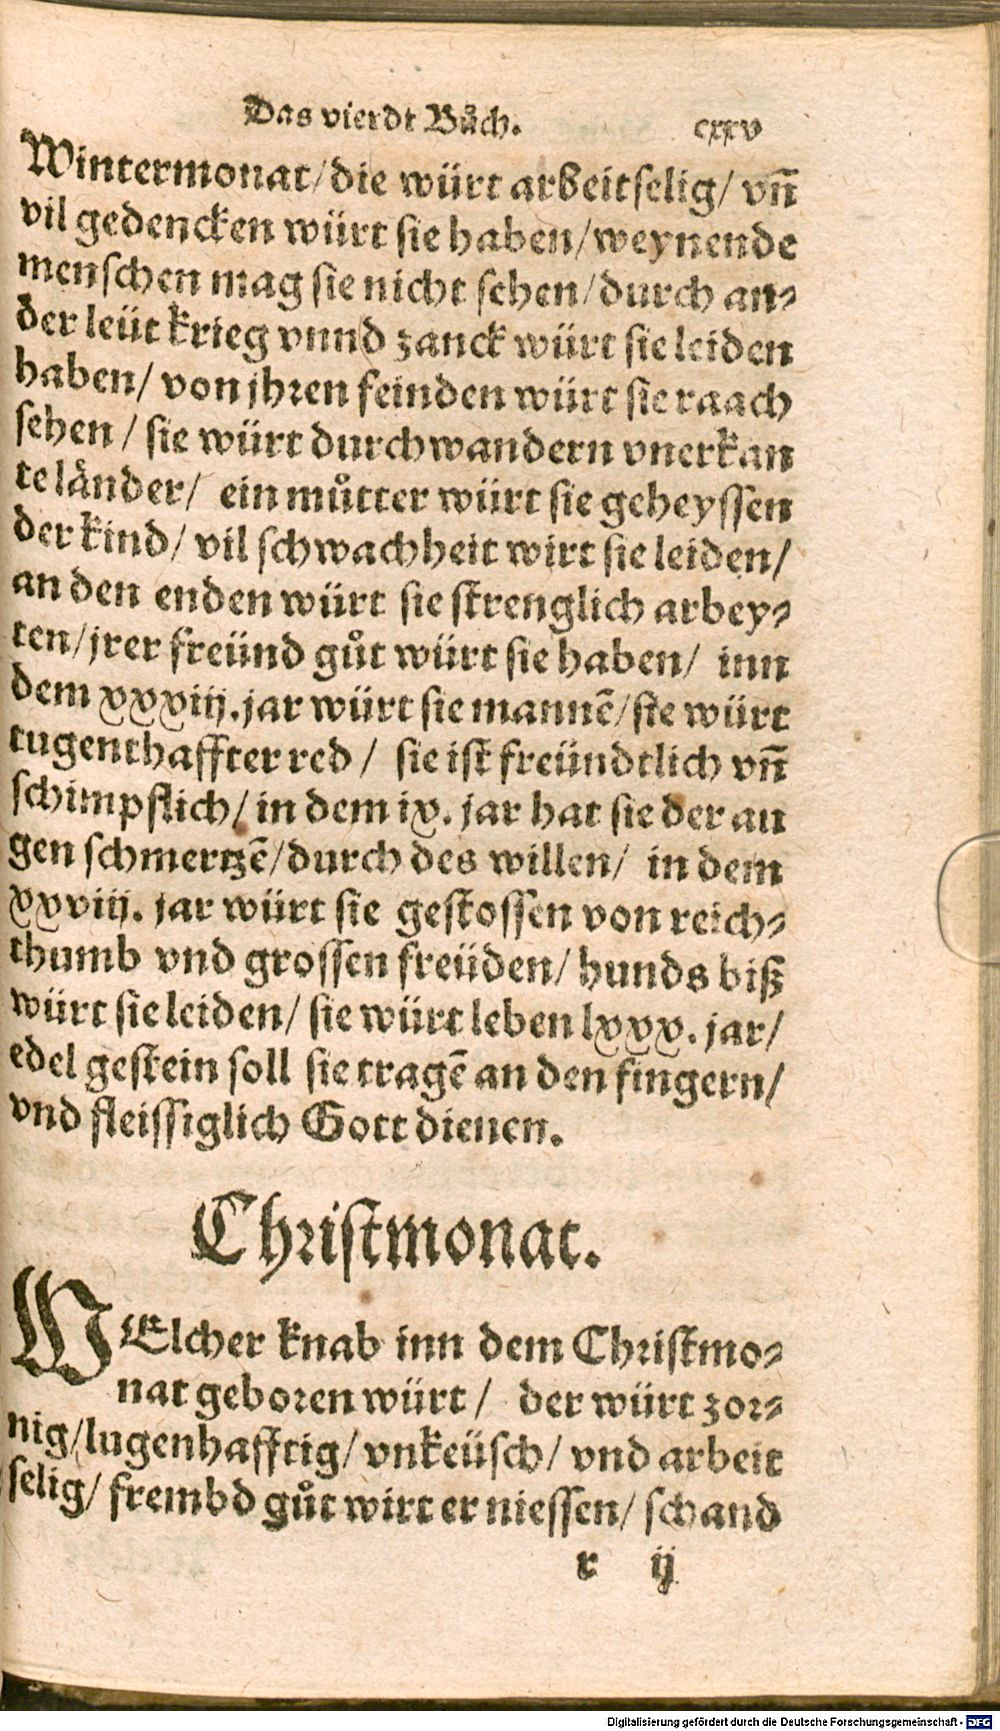 Das vierdt Bůch. cxxv
Wintermonat/die würt arbeitselig/ vñ
vil gedencken würt sie haben/weynende
menschen mag sie nicht sehen/durch an-
der leüt krieg vnnd zanck würt sie leiden
haben/ von jhren feinden würt sie raach
sehen/ sie würt durchwandern vnerkan
te länder/ ein můtter würt sie geheyssen
der kind/ vil schwachheit wirt sie leiden/
an den enden würt sie strenglich arbey-
ten/jrer freünd gůt würt sie haben/ inn
dem xxxiij.jar würt sie mannē/sie würt
tugenthaffter red/ sie ist freündtlich vñ
schimpflich/ in dem ix. jar hat sie der au
gen schmertzē/durch des willen/ in dem
xxviij. jar würt sie gestossen von reich-
thumb vnd grossen freüden/ hunds biß
würt sie leiden/ sie würt leben lxxx. jar/
edel gestein soll sie tragē an den fingern/
vnd fleissiglich Gott dienen.
Christmonat.
WElcher knab inn dem Christmo-
nat geboren würt/ der würt zor-
nig/lugenhafftig/ vnkeüsch/ vnd arbeit
selig/ frembd gůt wirt er niessen/ schand
r ij
Digitalisierung gefördert durch die Deutsche Forschungsgemeinschaft - DFG